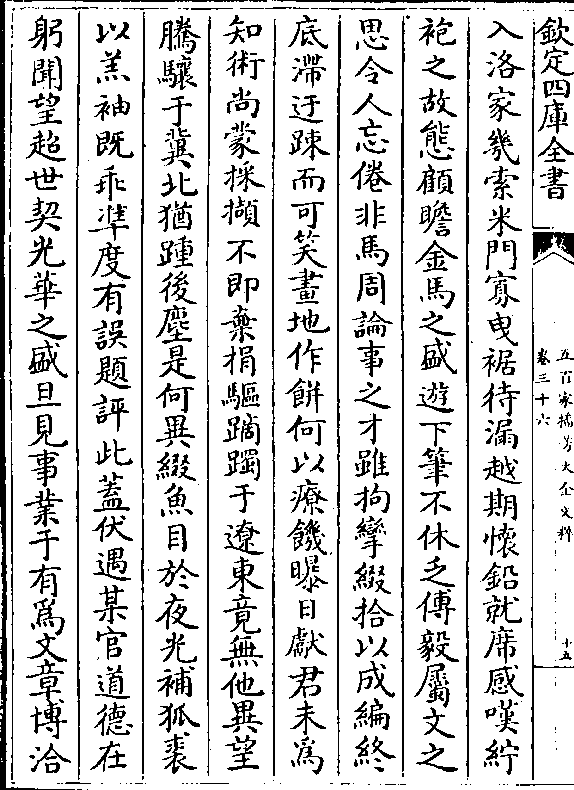 欽定四庫全書
五百家播芳大全文粹
卷三十六
十五
入洛家幾索米門寡曳裾待漏越期懷鉛就席感嘆紵
袍之故態顧瞻金馬之盛遊下筆不休乏傅毅屬文之
思令人忘倦非馬周論事之才雖拘攣綴拾以成編終
底滯迂疎而可笑畫地作餅何以療饑曝日獻君未為
知術尚蒙採擷不即棄捐驅蹢躅于遼東竟無他異望
騰驤于冀北猶踵後塵是何異綴魚目於夜光補狐裘
以羔袖既乖凖度有誤題評此蓋伏遇某官道德在
躬聞望超世契光華之盛旦見事業于有為文章博洽